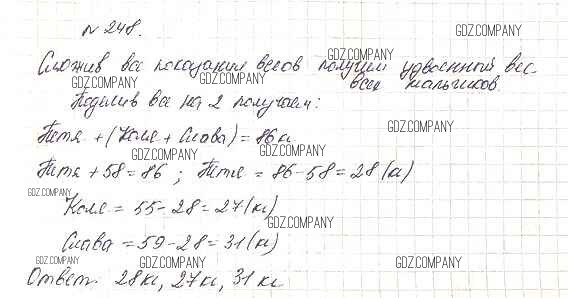 № 248.
GDZ.COMPANY
Сложив все показания весов получим удвоенный вес
GDZ.COMPANY
GDZ.COMPANY GDZ.COMPANY всех мальчиков.
Поделив все на 2 получаем:
GDZ.COMPANY
Петя + (Коля + Слава) = 86 кг
GDZ.COMPANY GDZ.COMPANY
Петя + 58 = 86 ; Петя = 86 - 58 = 28 (кг)
GDZ.COMPANY
Коля = 55 - 28 = 27 (кг)
GDZ.COMPANY
Слава = 59 - 28 = 31 (кг)
GDZ.COMPANY GDZ.COMPANY GDZ.COMPANY
Ответ: 28 кг, 27 кг, 31 кг